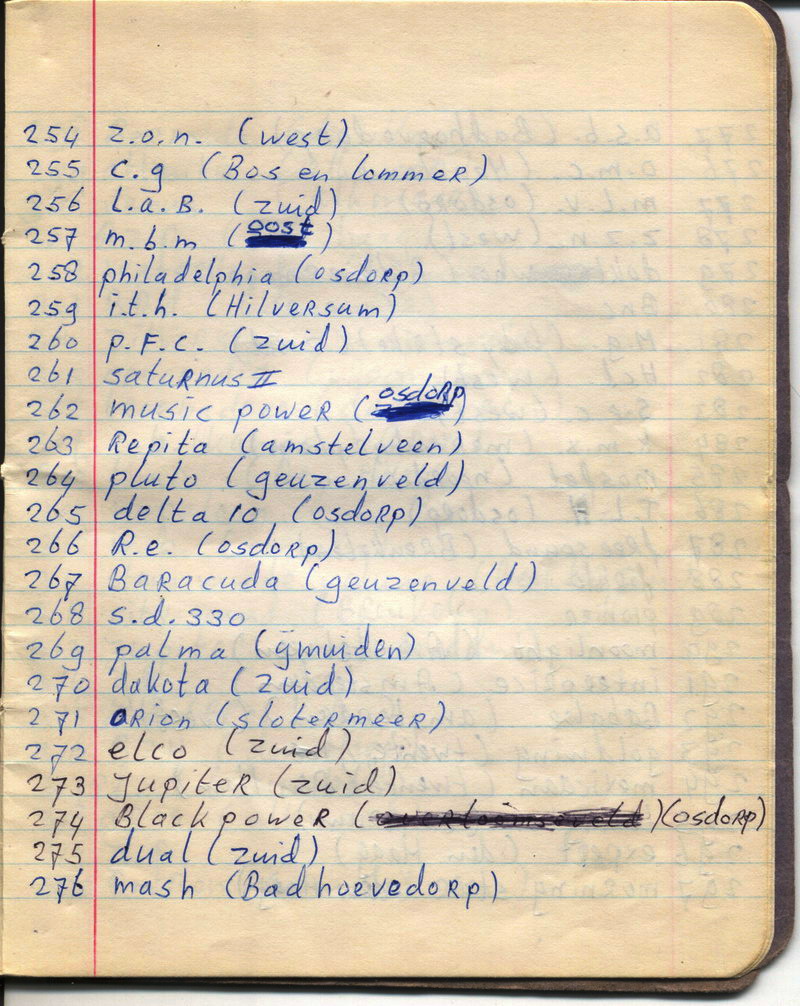 254 z.o.n. (west)
255 c.g (Bos en lommeR)
256 L.a.B. (zuid)
257 m.b.m (oost)
258 philadelphia (osdoRp)
259 i.t.h. (HilveRsum)
260 p.F.c. (zuid)
261 satuRnus II
262 music poweR (osdoRp)
263 Repita (amstelveen)
264 pluto (geuzenveld)
265 delta 10 (osdoRp)
266 R.e. (osdoRp)
267 BaRacuda (geuzenveld)
268 s.d. 330
269 palma (ÿmuiden)
270 dakota (zuid)
271 oRion (slotermeeR)
272 elco (zuid)
273 JupiteR (zuid)
274 Black poweR ( ) (osdoRp)
275 dual (zuid)
276 mash (BadhoevedoRp)